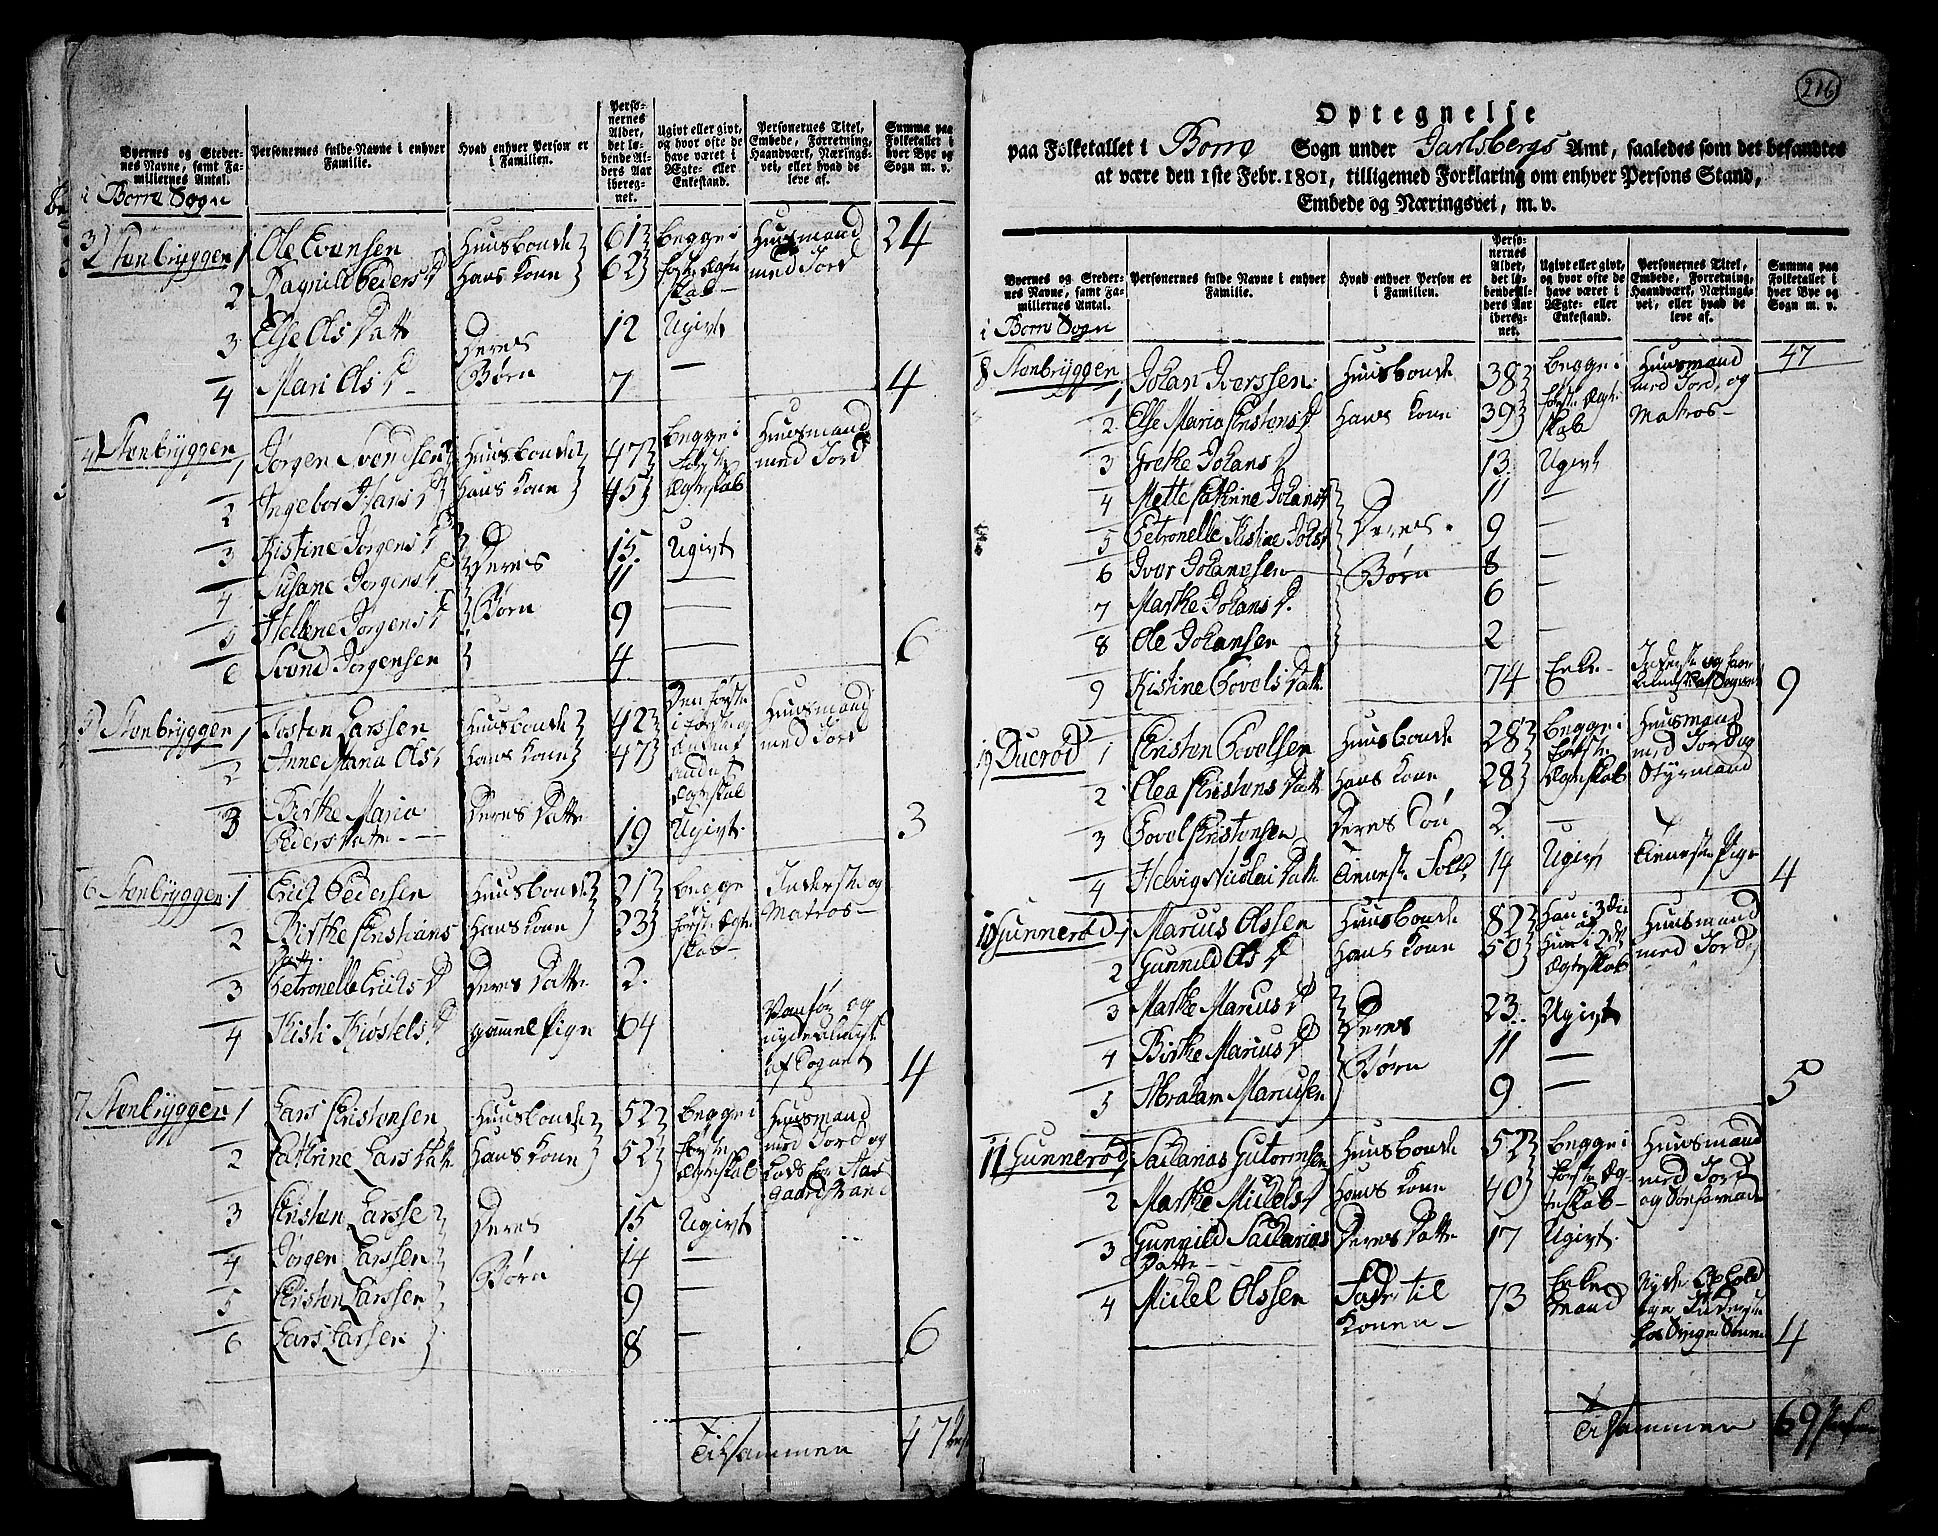 216
Byernes og Stedernes Navne, samt Familiernes Antal.
Personernes fulde Navne i enhver Familie.
Hvad enhver Person er i Familien.
Personernes Alder, det løbende Alders Aar iberegnet.
Ugivt eller givt, og hvor ofte de have været i Ægte- eller Enkestand.
Personernes Titel, Embede, Forretning, Haandværk, Næringsvei, eller hvad de leve af.
Summa paa Folketallet i hver Bye og Sogn m. v.
i Borre Sogn
24
3) Stenbryggen 1 Ole Evensen Huusbonde 61 begge i Huusmand
2 Ragnild Peders D Hans Kone 62 første Ægte med Jord
skab
3 Else Ols Datt Deres 12 Ugivt
4 Mari Ols D Børn 7 — 4
4) Stenbryggen 1 Jørgen Svendsen Huusbonde 47 begge i Huusmand
2 Ingebor Hans D Hans Kone 45 første Ægteskab med Jord
3 Kistine Jørgens D Deres 15 Ugivt
4 Susane Jørgens D Børn 11 —
5 Hellene Jørgens D 9 —
6 Svend Jørgensen 4 — 6
5) Stenbryggen 1 Tosten Larssen Huusbonde 42 Den første Huusmand
2 Anne Maria Ols D Hans Kone 47 med Jord
andet
Ægteskab
3 Birthe Maria Deres Datte 19 Ugivt 3
Peders Datte
6 Stenbryggen 1 Erich Pedersen Huusbonde 21 begge i Inderste og
2 Birthe Kristians Hans Kone 23 første Ægte Matros
Datt skab
3 Petronelle Erichs D Deres Datte 2
4 Kisti Kiøstels D gammel Pige 64 Vanfør og
nyder Almisse
af Sognet 4
7 Stenbryggen 1 Lars Kristensen Huusbonde 52 begge i Huusmand
2 Cathrine Lars Datte Hans Kone 52 første med Jord og
Ægteskab Lods for Aas
gaardstrand
3 Kristen Larssen Deres 15 Ugivt
4 Jørgen Larssen Børn 14 —
5 Kristen Larssen 9 —
6 Lars Larsen 8 — 6
Tilsammen 47
Optegnelse
paa Folketallet i Borre Sogn under Jarlsbergs Amt, saaledes som det befandtes
at være den 1ste Febr. 1801, tilligemed Forklaring om enhver Persons Stand,
Embede og Næringsvei, m. v.
Byernes og Stedernes Navne, samt Familiernes Antal.
Personernes fulde Navne i enhver Familie.
Hvad enhver Person er i Familien.
Personernes Alder, det løbende Alders Aar iberegnet.
Ugivt eller givt, og hvor ofte de have været i Ægte- eller Enkestand.
Personernes Titel, Embede, Forretning, Haandværk, Næringsvei, eller hvad de leve af.
Summa paa Folketallet i hver Bye og Sogn m. v.
i Borre Sogn
47
8 Stenbryggen 1 Johan Iverssen Huusbonde 38 begge i Huusmand
2 Else Maria Kristens D Hans Kone 39 første Ægte med Jord, og
skab Matros
3 Grethe Johans D 13 Ugivt
4 Mette Cathrine Johans D Deres 11 —
5 Petronelle Kistine Johs D 9 —
6 Iver Johanesen Børn 8 —
7 Marthe Johans D. 6 —
8 Ole Johansen 2 —
9 Kistine Povels Datte 74 Enke Inderste og 9
9 Ducrød 1 Kristen Povelsen Huusbonde 28 begge i Huusmand
2 Olea Kristens Datt Hans Kone 28 første Ægteskab med Jord og Styrmand
3 Povel Kristensen Deres Søn 2 —
4 Helvig Nicolai Datte Tieneste Folk 14 Ugivt Tieneste Pige 4
10 Gunnerød 1 Marcus Olssen Huusbonde 82 Han i 3die og Huusmand
2 Gunnild Ols D Hans Kone 50 Hun i 2det Ægteskab med Jord
3 Marthe Marcus D Deres 23 Ugivt
4 Birthe Marcus D Børn 11 —
5 Abraham Marcussen 9 — 5
11 Gunnerød 1 Sacharias Gutormsen Huusbonde 52 begge i Huusmand
2 Marthe Michels D Hans Kone 40 første Æg- med Jord
teskab og Søefarende
3 Gunnild Sacharias Deres Datte 17 Ugivt
Datte
4 Michel Olssen Fader til 73 Enke Nyder Ophold
Konen mand
4
Tilsammen 69 Personer